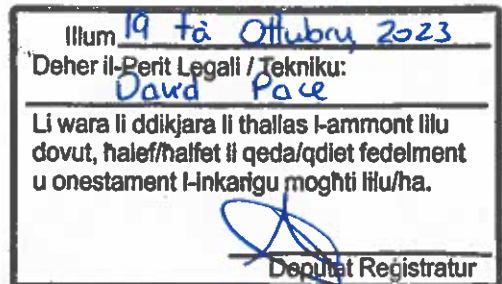 Illum 19 ta Ottubru, 2023
Deher il-Perit Legali / Tekniku:
David Pace
Li wara li ddikjara li tħallas l-ammont lilu
dovut, ħalef/ħalfet li qeda/qdiet fedelment
u onestament l-inkarigu mogħti lilu/ha.
Deputat Reġistratur